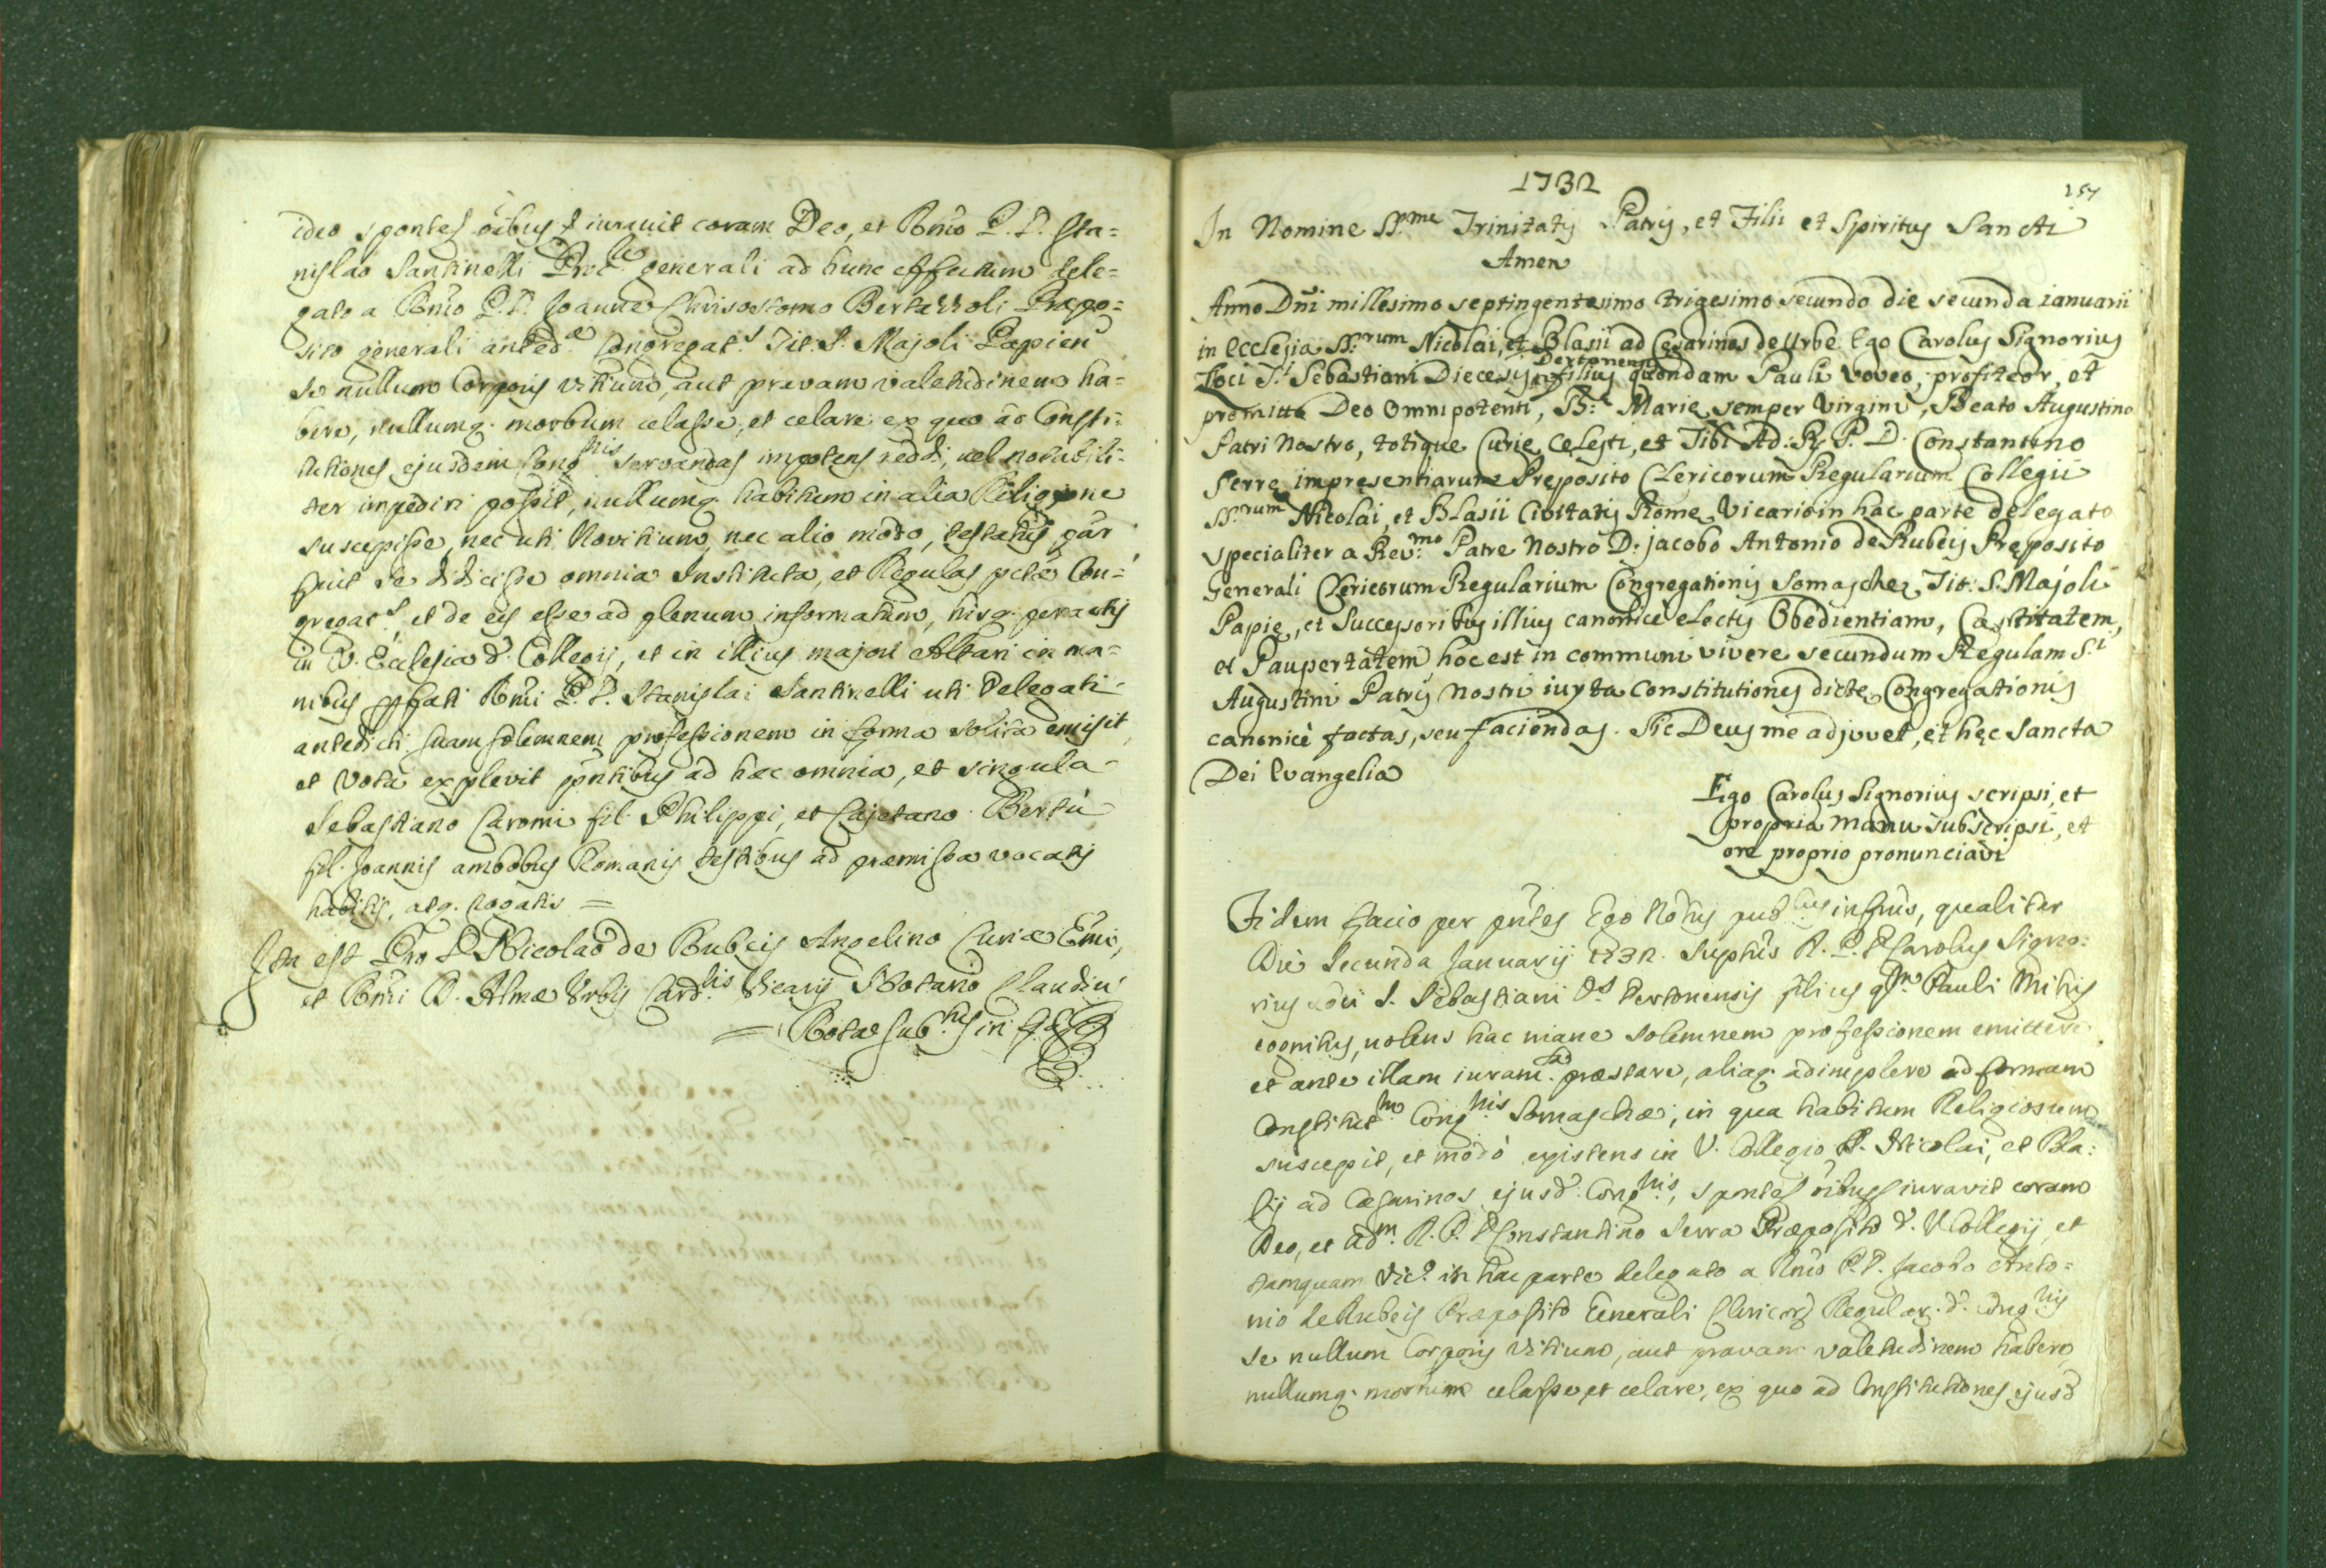 ideo sponte oibus s iuravit coram Deo, et Rmo P. D. Sta=
nislao Santinelli Proc.re generali ad hunc effectum dele=
gato a Rmo P. D. Joanne Chrisostomo Bertazzoli Prepo=
sito generali anted.æ Congregat.s Tit. S. Majoli Papien
se nullum Corporis vitium, aut pravam valetudinem ha=
bere, nullumq. morbum celasse, et celare ex quo ad Consti=
tutiones ejusdem Cong.nis servandas impotens reddi, vel notabili=
ter impediri possit, nullumq. habitum in alia Religione
suscepisse, nec uti Novitium, nec alio modo, testatus par
fuit se didicisse omnia Instituta, et Regulas pctæ Con=
gregat.s et de eis esse ad plenum informatum, hisq. peractis
in V. Ecclesia d. Collegij, et in illius majori Altari in ma=
nibus pfati Rmi P. D. Stanislai Santinelli uti Delegati
antedicti suam solemnem professionem in forma solita emisit,
et vota explevit pntibus ad hæc omnia, et singula
Sebastiano Caromi fil. Philippi, et Cajetano Bertù
fil. Joannis ambobus Romanis testibus ad præmissa vocatis
habitis, atq. rogatis =
Ita est Pro D. Nicolao de Rubeis Angelino Curiæ Emi,
et Rmi D. Almæ Urbis Card.lis Vicarij Notario Claudiu
= Rota sub.tus in
1732
157
In Nomine SS.me Trinitatis Patris, et Filii et Spiritus Sancti
Amen
Anno Dñi millesimo septingentesimo trigesimo secundo die secunda ianuarii
in Ecclesia SS.rum Nicolai, et Blasii ad Cesarinos de Urbe Ego Carolus Signorius
Dertonensis
Loci S.i Sebastiani Diecesis filius quondam Pauli voveo, profiteor, et
promitto Deo Omnipotenti, B. Marie semper Virgini, Beato Augustino
Patri Nostro, totique Curie Celesti, et Tibi Ad: R. P. D. Constantino
Serre impresentiarum Preposito Clericorum Regularium Collegii
SS.rum Nicolai, et Blasii Civitatis Rome, Vicario in hac parte delegato
specialiter a Rev:mo Patre Nostro D: jacobo Antonio de Rubeis Preposito
Generali Clericorum Regularium Congregationis Somasche, Tit: S. Majoli
Papie, et Successoribus illius canonice electis Obedientiam, Castitatem,
et Paupertatem, hoc est in communi vivere secundum Regulam S.i
Augustini Patris nostri iuxta Constitutiones dicte Congregationis
canonicè factas, seu faciendas. Sic Deus me adjuvet, et hęc Sancta
Dei Evangelia
Ego Carolus Signorius scripsi, et
propria manu subscripsi, et
ore proprio pronunciavi
Fidem facio per pntes Ego Notus pub.cus infrus, qualiter
Die Secunda Januarij 1732. Suptus R. P. D Carolus Signo=
rius Loci S. Sebastiani D.s Dertonensis filius q.m Pauli mihi
cognitus, volens hac mane solemnem professionem emittere,
et ante illam iuram.ta præstare, aliaq. adimplere ad formam
Constitut.m Cong.nis Somaschæ, in qua habitum Religiosum
suscepit, et modò existens in V. Collegio S. Nicolai, et Bla=
sij ad Cæsarinos ejusd. Cong.nis, sponte oibus iuravit coram
Deo, et Ad.m R. P. D Constantino Serra Præposito d. V. Collegij, et
tamquam Vic.o in hac parte delegato a Rmo P. D. Jacobo Anto=
nio de Rubeis Præposito Generali Clericor. Regular. d. Cong.nis
se nullum Corporis vitium, aut pravam valetudinem habere,
nullumq. morbum celasse, et celare, ex quo ad Constitutiones ejusd